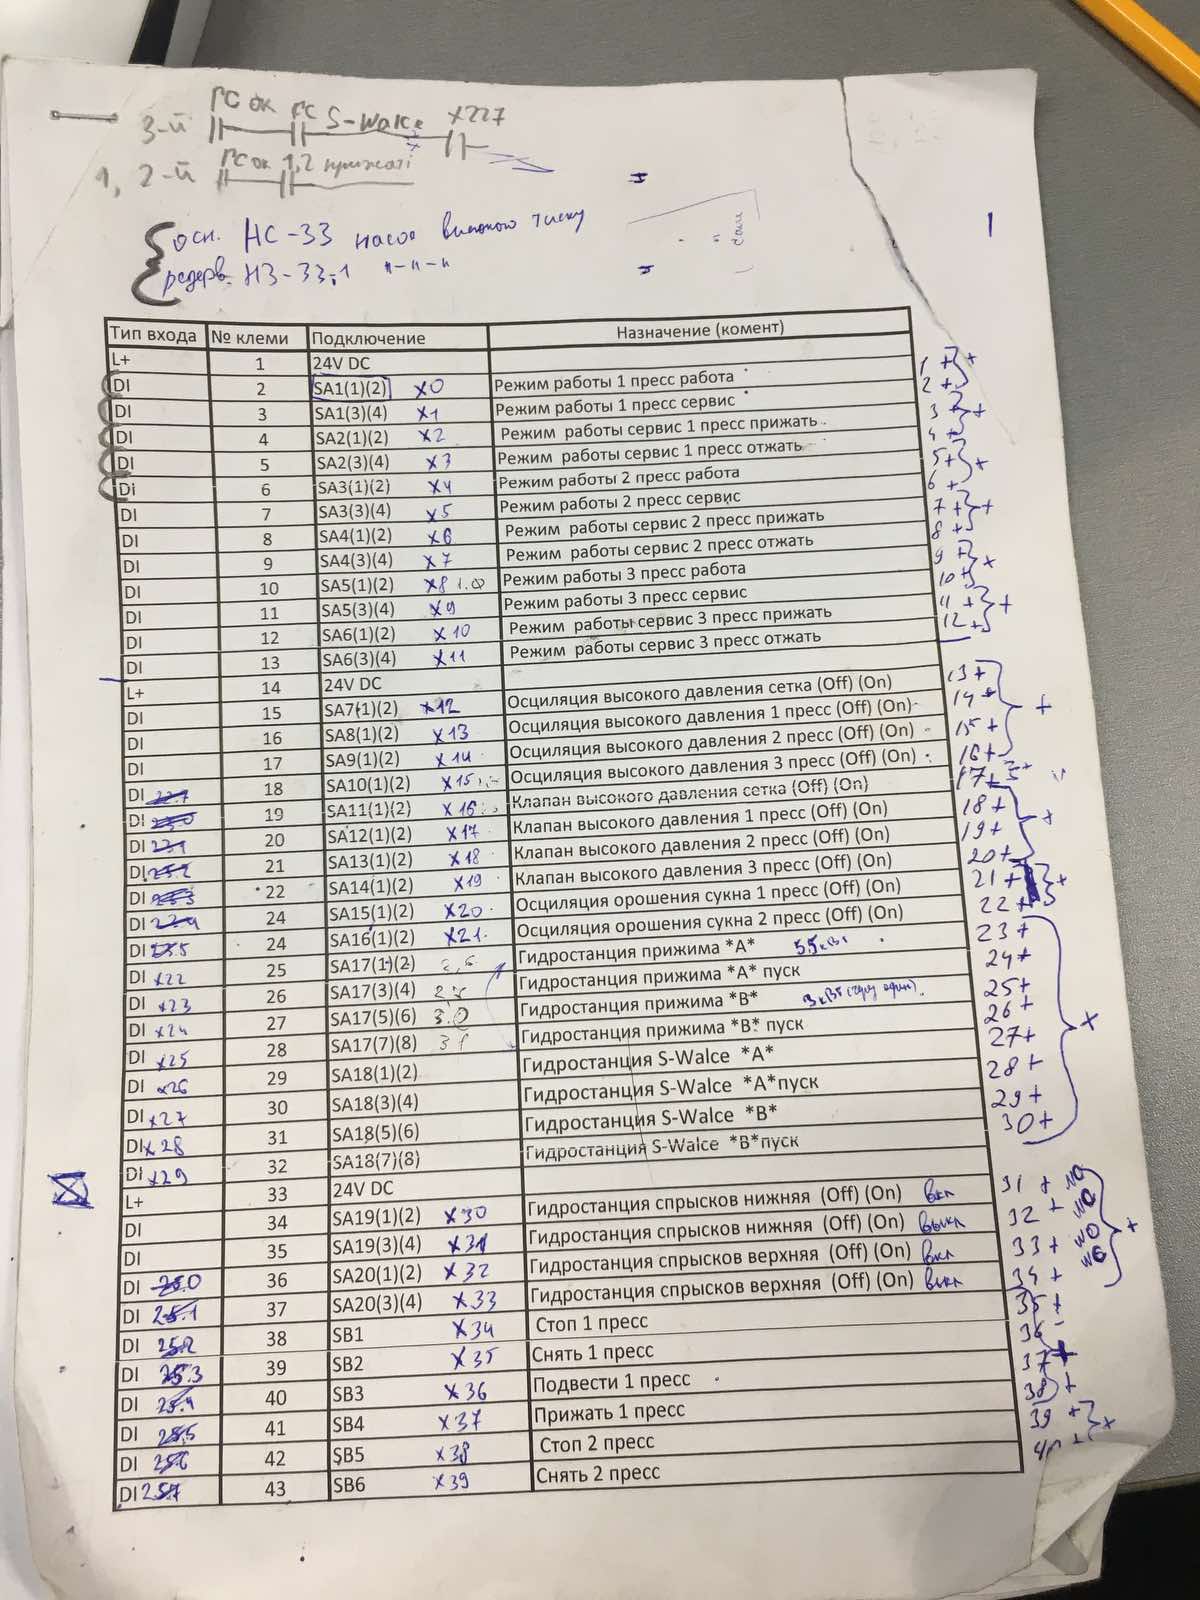 ГС ОК ГС S-Walce X227
3-й
ГС ОК 1,2 прижаті
1, 2-й
осн. НС-33 насос високого тиску
резерв. НЗ-33.1 "-"-"
1
Тип входа № клеми Подключение Назначение (комент)
L+ 1 24V DC
DI 2 SA1(1)(2) X0 Режим работы 1 пресс работа 1 +
DI 3 SA1(3)(4) X1 Режим работы 1 пресс сервис 2 + +
DI 4 SA2(1)(2) X2 Режим работы сервис 1 пресс прижать 3 +
DI 5 SA2(3)(4) X3 Режим работы сервис 1 пресс отжать 4 + +
Di 6 SA3(1)(2) X4 Режим работы 2 пресс работа 5 +
DI 7 SA3(3)(4) X5 Режим работы 2 пресс сервис 6 + +
DI 8 SA4(1)(2) X6 Режим работы сервис 2 пресс прижать 7 +
DI 9 SA4(3)(4) X7 Режим работы сервис 2 пресс отжать 8 + +
DI 10 SA5(1)(2) X8 1.0 Режим работы 3 пресс работа 9 +
DI 11 SA5(3)(4) X9 Режим работы 3 пресс сервис 10 + +
DI 12 SA6(1)(2) X10 Режим работы сервис 3 пресс прижать 11 +
DI 13 SA6(3)(4) X11 Режим работы сервис 3 пресс отжать 12 + +
L+ 14 24V DC
DI 15 SA7(1)(2) X12 Осциляция высокого давления сетка (Off) (On) 13 +
DI 16 SA8(1)(2) X13 Осциляция высокого давления 1 пресс (Off) (On) 14 +
DI 17 SA9(1)(2) X14 Осциляция высокого давления 2 пресс (Off) (On) 15 + +
DI 18 SA10(1)(2) X15 Осциляция высокого давления 3 пресс (Off) (On) 16 +
DI 19 SA11(1)(2) X16 Клапан высокого давления сетка (Off) (On) 17 +
DI 20 SA12(1)(2) X17 Клапан высокого давления 1 пресс (Off) (On) 18 +
DI 21 SA13(1)(2) X18 Клапан высокого давления 2 пресс (Off) (On) 19 + +
DI 22 SA14(1)(2) X19 Клапан высокого давления 3 пресс (Off) (On) 20 +
DI 24 SA15(1)(2) X20 Осциляция орошения сукна 1 пресс (Off) (On) 21 +
DI 24 SA16(1)(2) X21 Осциляция орошения сукна 2 пресс (Off) (On) 22 + +
DI X22 25 SA17(1)(2) 2.6 Гидростанция прижима *A* 5,5 кВт 23 +
DI X23 26 SA17(3)(4) 2.7 Гидростанция прижима *A* пуск 24 +
DI X24 27 SA17(5)(6) 3.0 Гидростанция прижима *B* 3 кВт 25 +
DI X25 28 SA17(7)(8) 3.1 Гидростанция прижима *B* пуск 26 +
DI X26 29 SA18(1)(2) Гидростанция S-Walce *A* 27 + +
DI X27 30 SA18(3)(4) Гидростанция S-Walce *A*пуск 28 +
DI X28 31 SA18(5)(6) Гидростанция S-Walce *B* 29 +
DI X29 32 SA18(7)(8) Гидростанция S-Walce *B*пуск 30 +
L+ 33 24V DC
DI 34 SA19(1)(2) X30 Гидростанция спрысков нижняя (Off) (On) вкл 31 + NO
DI 35 SA19(3)(4) X31 Гидростанция спрысков нижняя (Off) (On) выкл 32 + NO
DI 25.0 36 SA20(1)(2) X32 Гидростанция спрысков верхняя (Off) (On) вкл 33 + NO +
DI 25.1 37 SA20(3)(4) X33 Гидростанция спрысков верхняя (Off) (On) выкл 34 +
DI 25.2 38 SB1 X34 Стоп 1 пресс 35 +
DI 25.3 39 SB2 X35 Снять 1 пресс 36
DI 25.4 40 SB3 X36 Подвести 1 пресс 37 +
DI 25.5 41 SB4 X37 Прижать 1 пресс 38 +
DI 25.6 42 SB5 X38 Стоп 2 пресс 39 +
DI 25.7 43 SB6 X39 Снять 2 пресс 40 + +